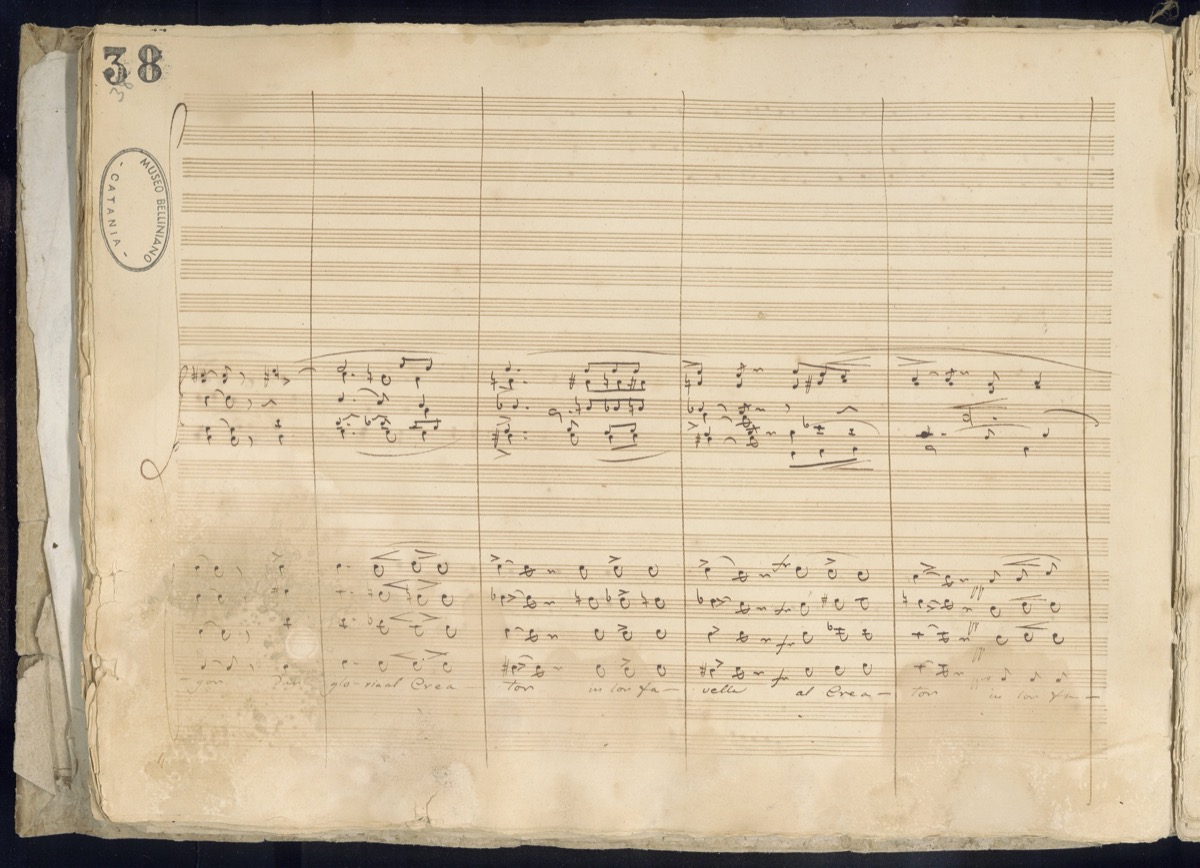 38
38
MUSEO BELLINIANO
- CATANIA -
gon dan glo-ria al Crea- tor in lor fa- vella al Crea- tor in lor fa-